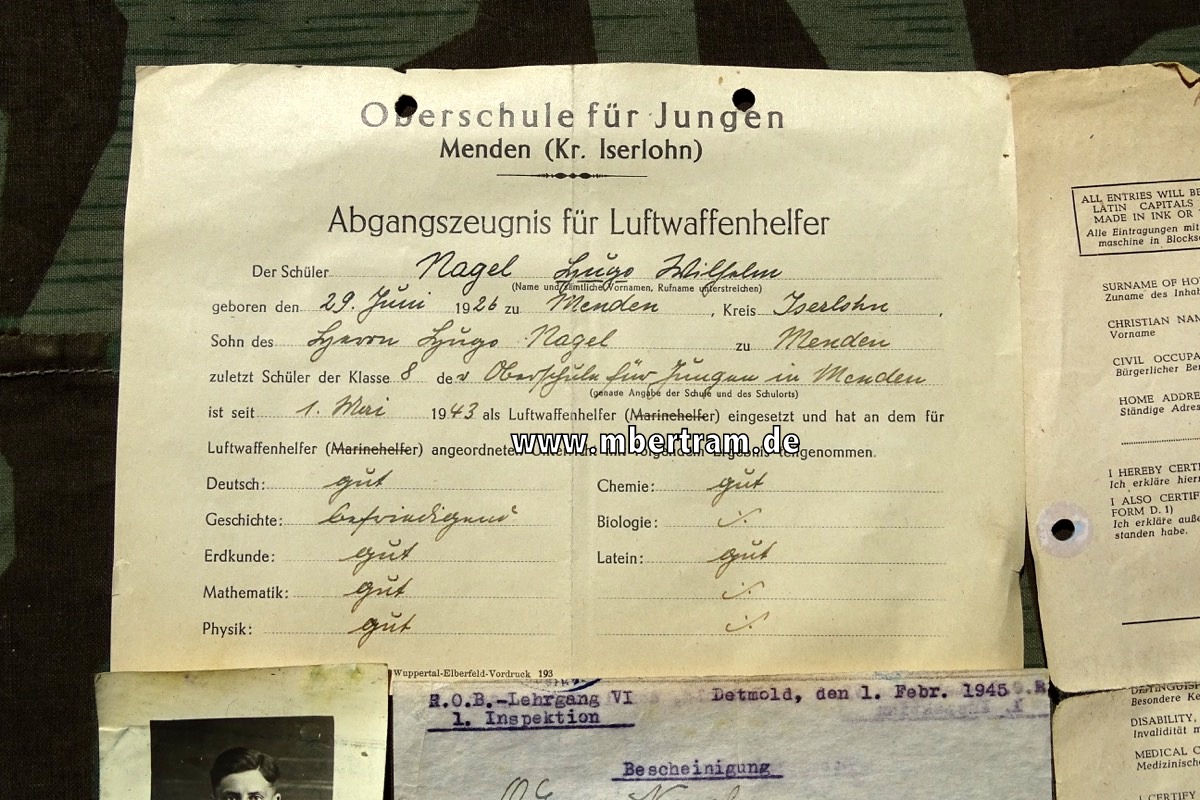 Oberschule für Jungen
Menden (Kr. Iserlohn)
Abgangszeugnis für Luftwaffenhelfer
Der Schüler Nagel Hugo Wilhelm
(Name und sämtliche Vornamen, Rufname unterstreichen)
geboren den 29. Juni 1926 zu Menden, Kreis Iserlohn,
Sohn des Herrn Hugo Nagel zu Menden
zuletzt Schüler der Klasse 8 der Oberschule für Jungen in Menden
(genaue Angabe der Schule und des Schulorts)
ist seit 1. Mai 1943 als Luftwaffenhelfer (Marinehelfer) eingesetzt und hat an dem für
Luftwaffenhelfer (Marinehelfer) angeordneten teilgenommen.
www.mbertram.de
Deutsch: gut
Geschichte: befriedigend
Erdkunde: gut
Mathematik: gut
Physik: gut
Chemie: gut
Biologie: ·/.
Latein: gut
·/.
·/.
Wuppertal-Elberfeld-Vordruck 193
R.O.B.-Lehrgang VI Detmold, den 1. Febr. 1945
1. Inspektion
Bescheinigung
ALL ENTRIES WILL BE
LATIN CAPITALS
MADE IN INK OR
Alle Eintragungen mit
maschine in Blocks
SURNAME OF HO
Zuname des Inhab
CHRISTIAN NAM
Vorname
CIVIL OCCUPA
Bürgerlicher Be
HOME ADDRE
Ständige Adres
I HEREBY CERTI
Ich erkläre hierm
I ALSO CERTIF
FORM D. 1)
Ich erkläre auße
standen habe.
DISTINGUISH
Besondere Ke
DISABILITY,
Invalidität m
MEDICAL C
Medizinisch
I CERTIFY